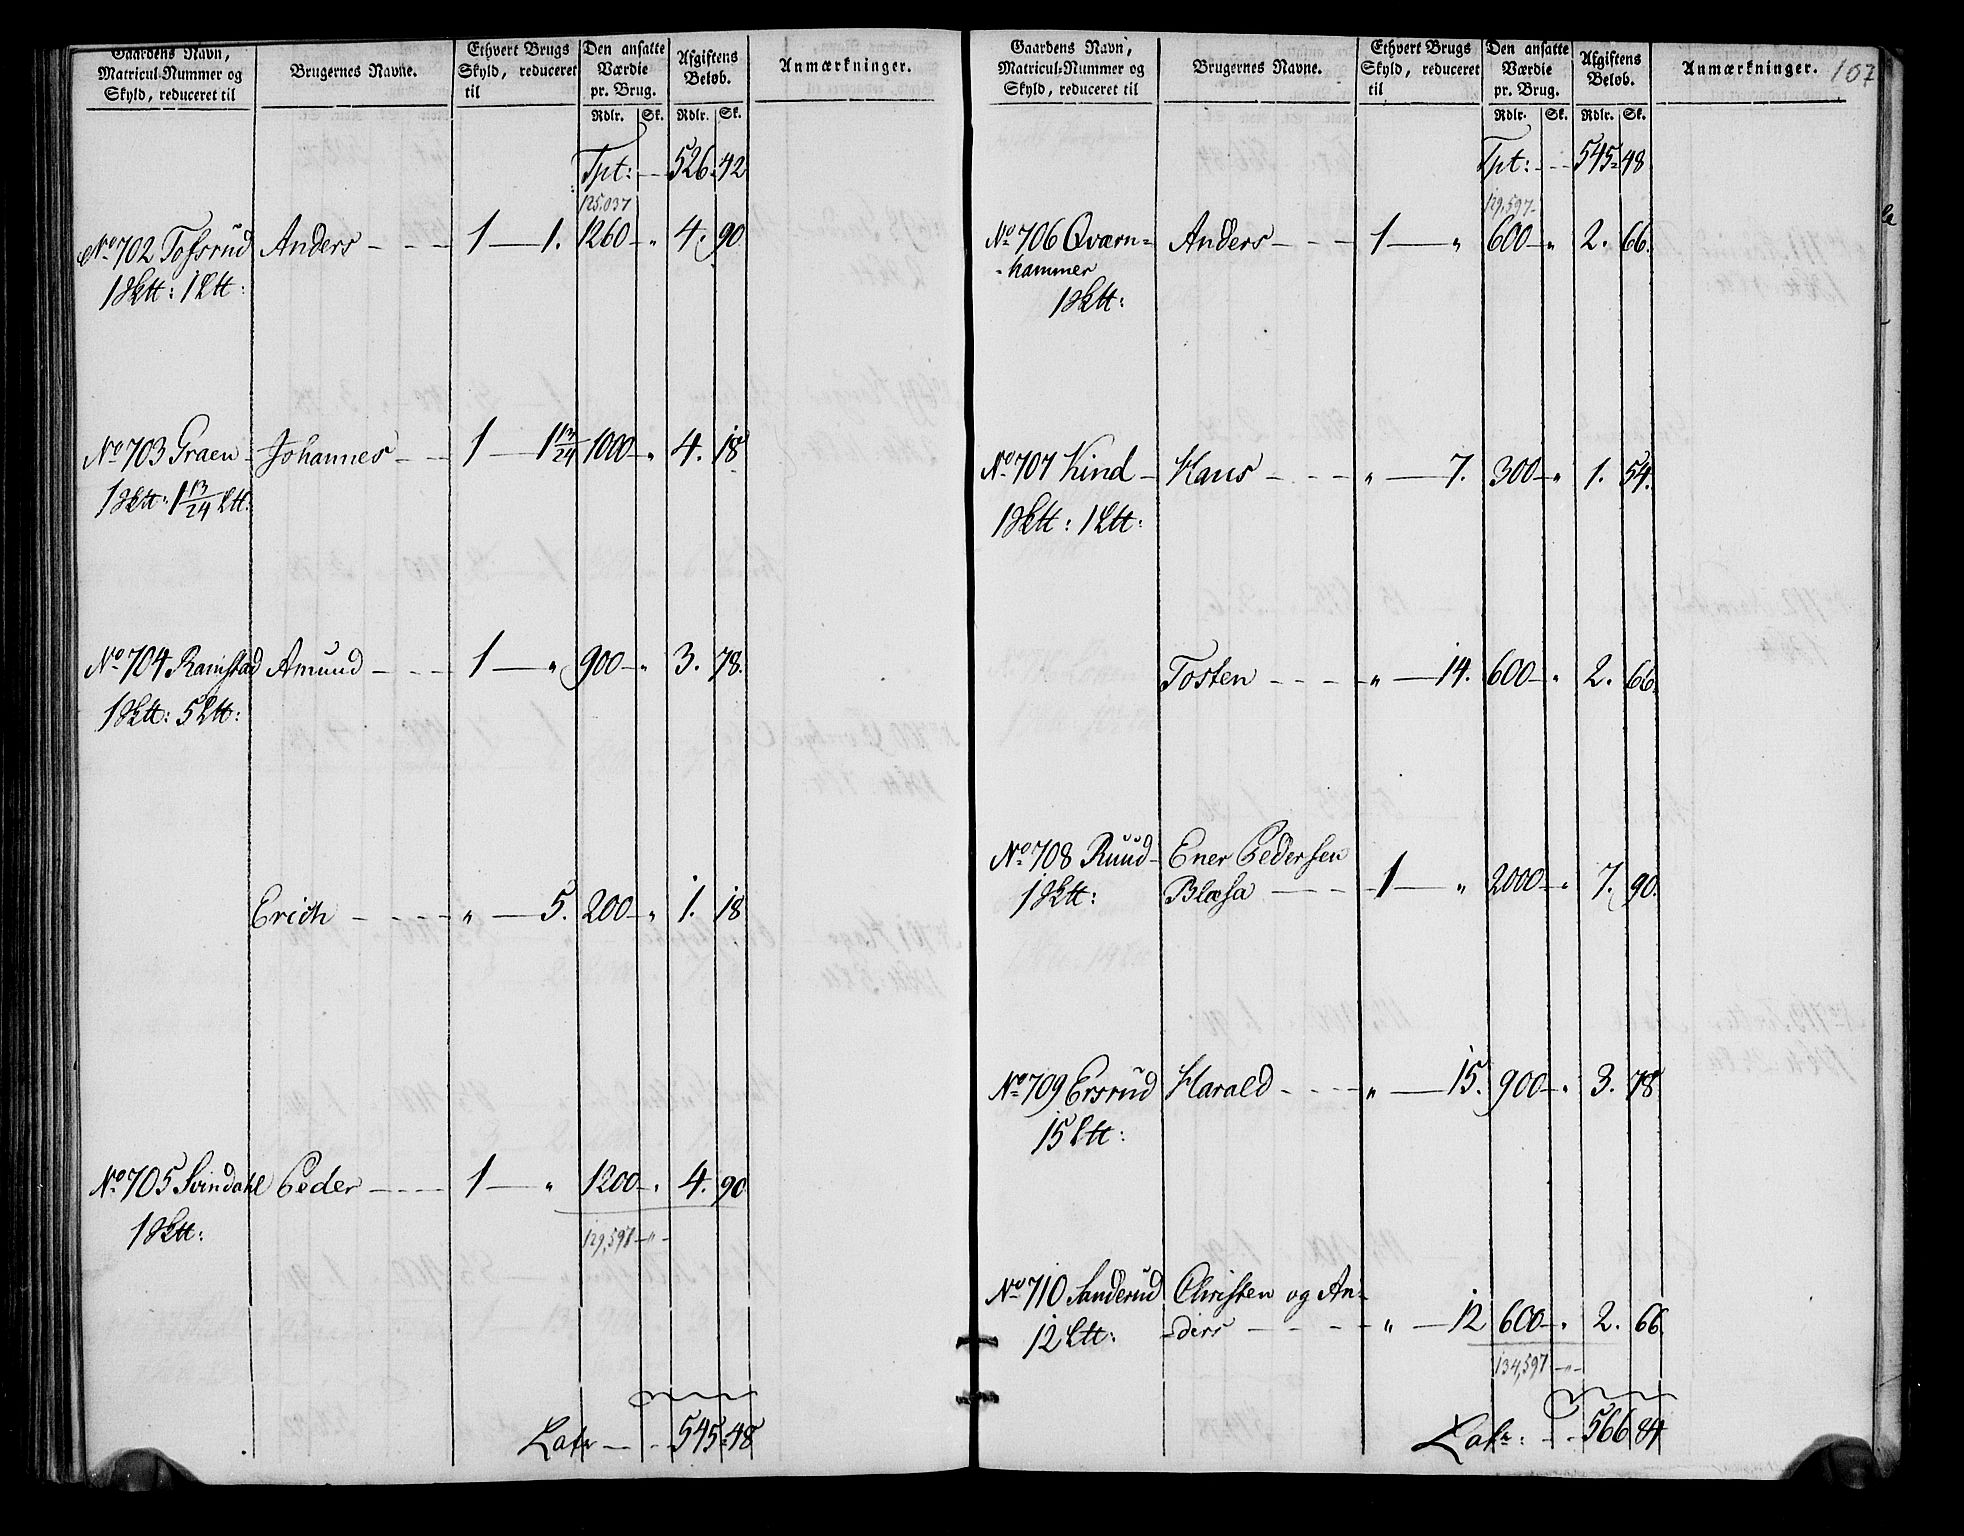 Gaardens Navn, Matricul-Nummer og Skyld, reduceret til | Brugernes Navne. | Ethvert Brugs Skyld, reduceret til | Den ansatte Værdie pr. Brug. | Afgiftens Beløb. | Anmærkninger.
Rdlr. Sk. Rdlr. Sk.
Tpt: - - 526. 42
125,037
No 702 Tofsrud Anders - - - 1 — 1. 1260 - " 4. 90
1 Sktt: 1 Ltt:
No 703 Graen - Johannes - - - 1 — 1 13/24 1000 - " 4. 18
1 Sktt: 1 13/24 Ltt:
No 704 Ramstad Amund - - - 1 — " 900 - " 3. 78.
1 Sktt: 5 Ltt:
Erich - - - - " — 5. 200 - " 1. 18
No 705 Svindahl Peder - - - 1 — " 1200 - " 4. 90
1 Sktt:
129,597 - " -
Lat - - - 545 = 48
Gaardens Navn, Matricul-Nummer og Skyld, reduceret til | Brugernes Navne. | Ethvert Brugs Skyld, reduceret til | Den ansatte Værdie pr. Brug. | Afgiftens Beløb. | Anmærkninger. 107
Rdlr. Sk. Rdlr. Sk.
Tpt: - - 545 = 48
129,597 -
No 706 Qværn= Anders - - - 1 — " 600 - " 2. 66.
= hammer
1 Sktt:
No 707 Kind - Hans - - - - " — 7. 300 - " 1. 54.
1 Sktt: 1 Ltt:
Tosten - - - - " — 14. 600 - " 2. 66.
No 708 Ruud - Ener Pedersen
1 Sktt: Blæsa - - - - 1 — " 2000 - " 7. 90.
No 709 Ersrud Harald - - - - " — 15. 900 - " 3. 78
15 Ltt:
No 710 Sanderud Christen og An-
12 Ltt: =ders - - - - " — 12 600 - " 2. 66.
134,597 - " -
Lat: - - 566 84